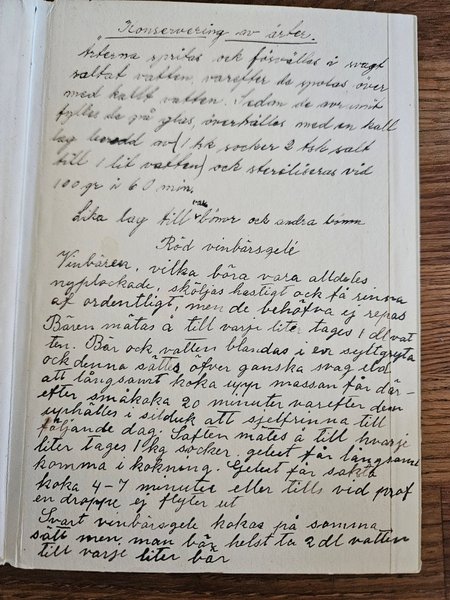 Konservering av ärter.
Ärterna spritas och förvällas i svagt
saltat vatten, varefter de spolas över
med kallt vatten. Sedan de avrunnit
fylles de på glas, överhälles med en kall
lag beredd av (1 tsk socker 2 tsk salt
till 1 lit vatten) och steriliseras vid
100 gr i 60 min.
Lika lag till vax bönor och andra bönor
Röd vinbärsgelé
Vinbären, vilka böra vara alldeles
nyplockade, sköljas hastigt och få rinna
af ordentligt, men de behöfva ej repas
Bären mätas å till varje liter tages 1 dl vat
ten. Bär och vatten blandas i en syltgryta
och denna sättes öfver ganska svag eld
att långsamt koka upp massan får där-
efter småkoka 20 minuter varefter den
upphälles i silduk att sjelfrinna till
följande dag. Saften mätes å till hvarje
liter tages 1 kg socker. geléet får långsamt
komma i kokning. Geléet får sakta
koka 4-7 minuter eller tills vid prof
en droppe ej flyter ut
Svart vinbärsgele kokas på samma
sätt men man bör helst ta 2 dl vatten
till varje liter bär